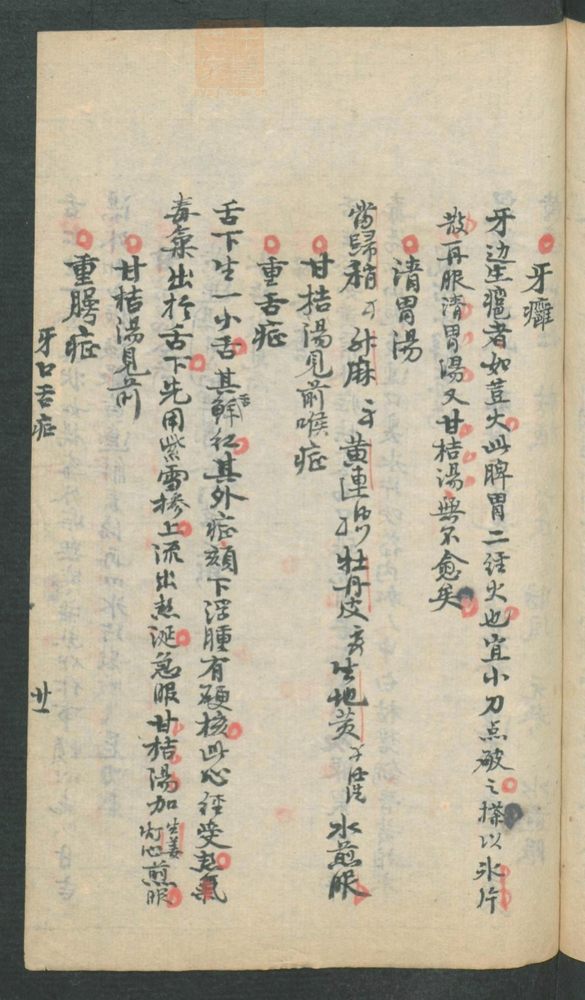 牙癰
牙边生癰者如荳大此脾胃二経火也宜小刀点破之搽以氷片
散再服清胃湯又甘桔湯無不愈矣
清胃湯
當歸稍 升麻 黄連 牡丹皮 生地黄 水煎服
甘桔湯見前喉症
重舌症
舌下生一小舌其鮮红其外症頦下浮腫有硬核此心经受熱氣
毒氣出於舌下先用紫雪摻上流出热涎急服甘桔陽加生姜灯心煎服
甘桔湯見前
重腭症
牙口舌症
廿